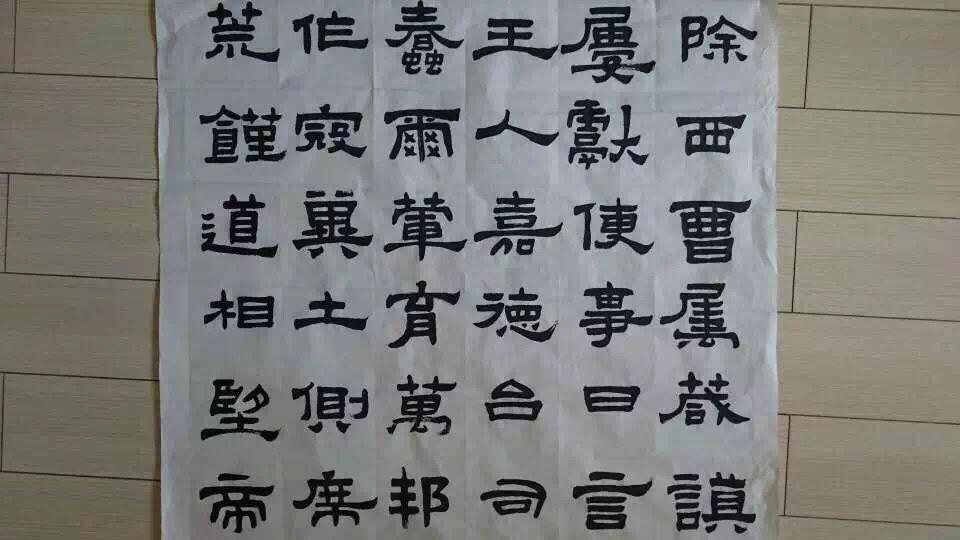 除西曹属葴謨
屢獻使事日言
王人嘉德台司
蠢爾葷育萬邦
作寇冀土側席
荒饉道相望帝